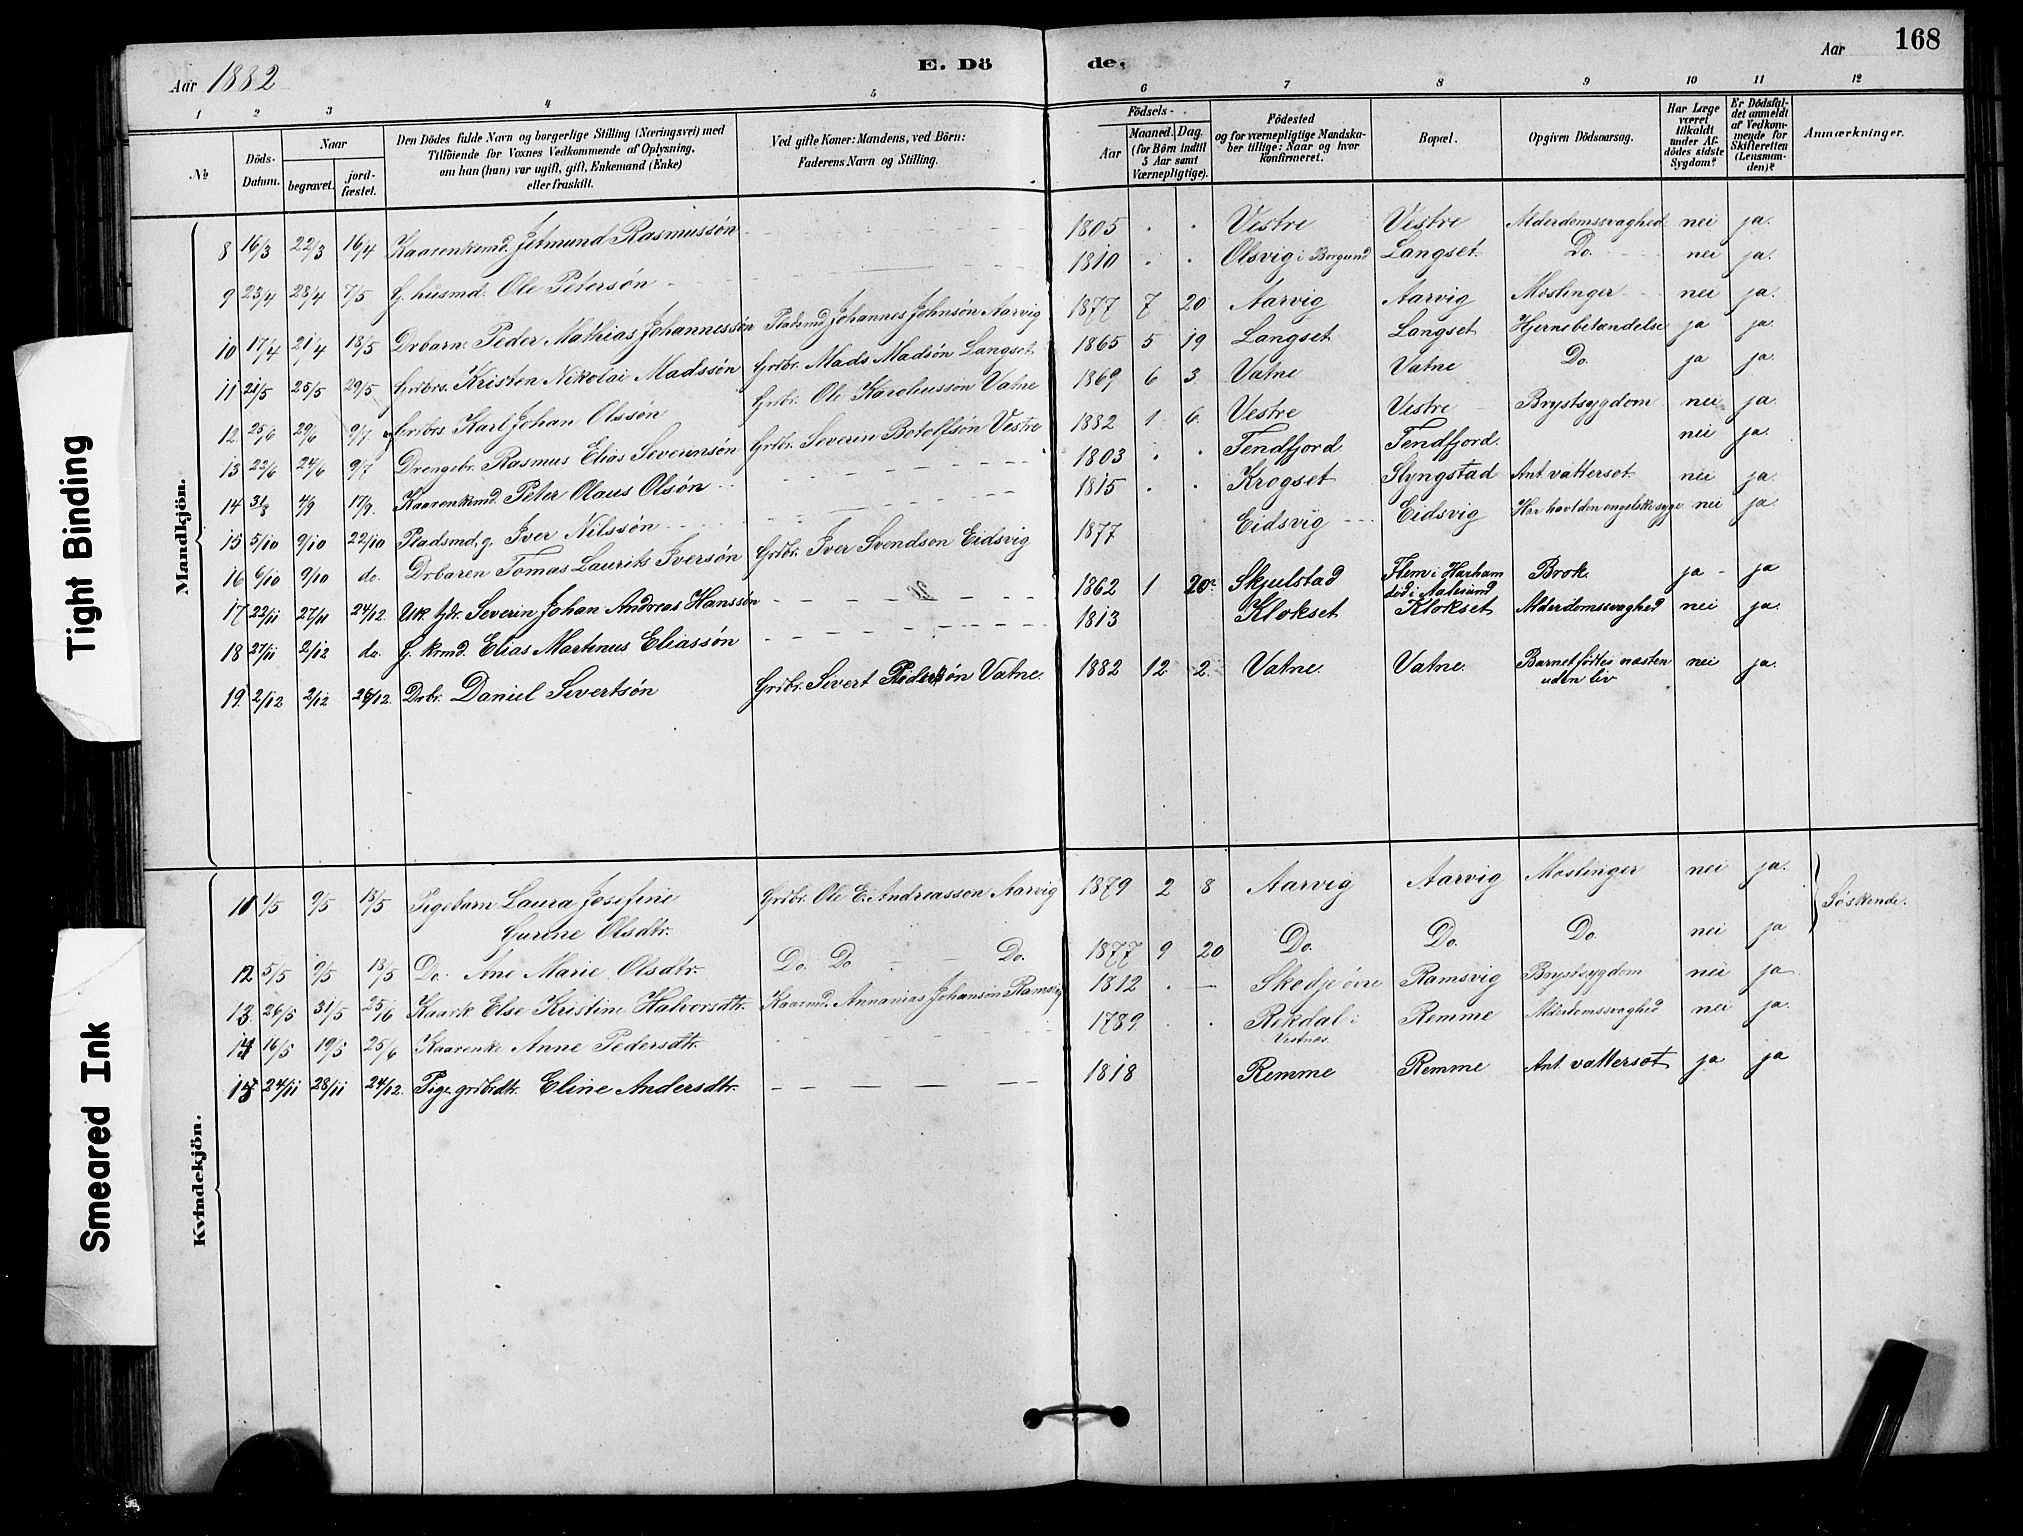 Aar 1882 E. Dö de. Aar 168
1 2 3 4 5 6 7 8 9 10 11 12
No Döds-Datum. Naar begravet. jord-fæstet. Den Dödes fulde Navn og borgerlige Stilling (Næringsvei) med Tilföiende for Voxnes Vedkommende af Oplysning, om han (hun) var ugift, gift, Enkemand (Enke) eller fraskilt. Ved gifte Koner: Mandens, ved Börn: Faderens Navn og Stilling. Födsels- Aar Maaned. Dag. (for Börn indtil 5 Aar samt Værnepligtige). Födested og for værnepligtige Mandskaber tillige: Naar og hvor konfirmeret. Bopæl. Opgiven Dödsaarsag. Har Læge været tilkaldt under Afdödes sidste Sygdom? Er Dödsfaldet anmeldt af Vedkommende for Skifteretten (Lensmanden)? Anmærkninger.
Mandkjön.
8 16/3 22/3 16/4 Kaarenkemd. Jetmund Rasmussön 1805 . . Vestre Vestre Alderdomssvaghed nei ja.
9 23/4 28/4 7/5 G. husmd. Ole Petersön 1810 . . Olsvig i Borgund Langset. Do. nei ja.
10 17/4 21/4 18/5 Drbarn. Peder Mathias Johannessön Pladsmd Johannes Johnsön Aarvig 1877 7 20 Aarvig Aarvig Meslinger nei ja.
11 21/5 25/5 29/5 Grdbrs. Kristen Nikolai Madssön Grdbr. Mads Madsön Langset 1865 5 19 Langset Langset Hjernebetændelse ja ja.
12 25/6 29/6 9/7 Grdbrs. Karl Johan Olssön Grdbr. Ole Karoliussön Vatne 1869 6 3 Vatne Vatne Do. ja ja.
13 22/6 24/6 9/7 Drengebr. Rasmus Elias Severinsön Grdbr. Severin Botolfsön Vestre 1882 1 6. Vestre Vestre Brystsygdom nei ja.
14 31/8 4/9 17/9. Kaarenkmd. Peter Olaus Olsön 1803 . . Tendfjord Tendfjord. nei ja.
15 5/10 9/10 22/10 Pladsmd, g. Iver Nilssön 1815 . . Krogset Slyngstad Ant. vattersot. nei ja.
16 6/10 9/10 do. Drbaren Tomas Laurits Iversön Grdbr. Iver Svendsen Eidsvig 1877 Eidsvig Eidsvig Har havt den engelske syge nei ja.
17 22/11 27/11 24/12. Uk. tjdr. Severin Johan Andreas Hanssön 1862 1 20 Skjelstad Flem i Harham död i Aalesund Brok. ja ja
18 27/11 2/12 do. G. krmd. Elias Martinus Eliassön 1813 Klokset Klokset Alderdomssvaghed nei ja.
19. 2/12 2/12 26/12. Drbr. Daniel Severtsön Grdbr. Sivert Pedersön Vatne. 1882 12 2. Vatne. Vatne. Barnet födtes næsten uden liv nei ja.
Kvindekjön.
11 1/5 9/5 18/5 Pigebarn Laura Josefine Grdbr. Ole E. Andreassön Aarvig 1879 2 8 Aarvig Aarvig Meslinger nei ja.
Gurine Olsdtr. Söskende.
12 5/5 9/5 18/5 Do. Ane Marie Olsdtr. Do. Do Do. 1877 9 20 Do. Do. Do. nei ja
13. 26/5 31/5 25/6 Kaark. Else Kristine Halvorsdtr. Kaarmd. Annanias Johansön Ramsvig 1812 . Skodje övre Ramsvig Brystsygdom nei ja.
14 16/5 19/5 25/6 Kaarenke Anne Pedersdtr. 1789. . Rekdal i Vestnes. Remme Alderdomssvaghed nei ja.
15 24/11 28/11 24/12. Pige grdbrdtr. Eline Andersdtr. 1818 Remme Remme Ant. vattersot ja ja
Tight Binding
Smeared Ink